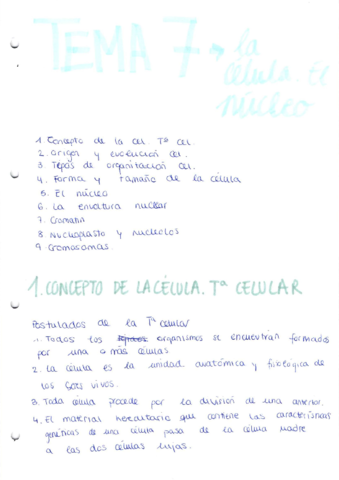 TEMA 7 → la
célula. El
núcleo
1. Concepto de la cel. Tª cel.
2. Origen y evolución cel.
3. Tipos de organización cel.
4. Forma y tamaño de la célula
5. El núcleo
6. La envoltura nuclear
7. Cromatin
8. Nucleoplasto y nucleolos
9. Cromosomas.
1. CONCEPTO DE LA CÉLULA. Tª CELULAR
Postulados de la Tª celular
1. Todos los organismos se encuentran formados
por una o más células
2. La célula es la unidad anatómica y fisiológica de
los seres vivos.
3. Toda célula procede por la división de una anterior.
4. El material hereditario que contiene las características
genéticas de una célula pasa de la célula madre
a las dos células hijas.